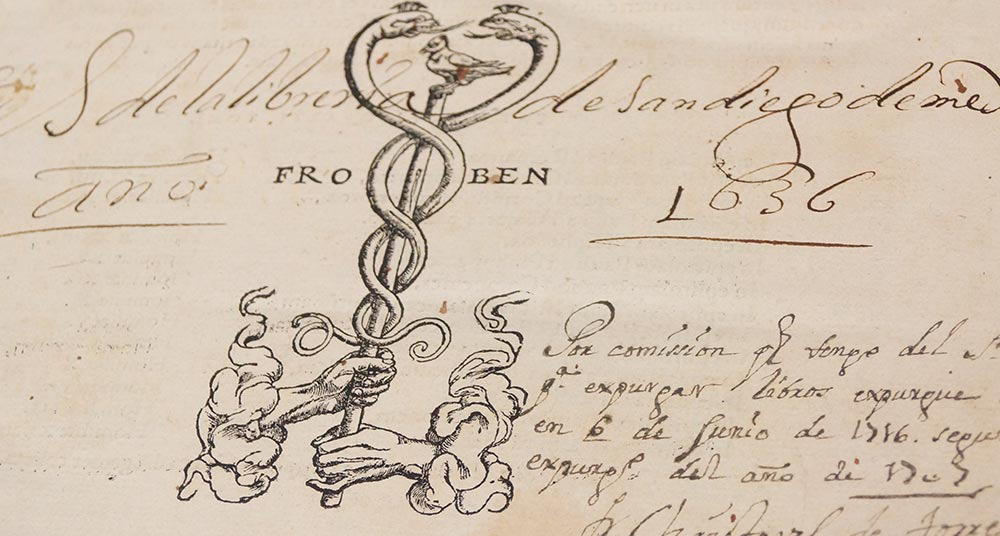 S de la libreria de san diego de me
año 1636
FRO BEN
Por comission q̃ tengo del Sto
pa expurgar libros expurgue
en 6 de Junio de 1716. segun
expurgo del año de 1707
fr Christoval de torre